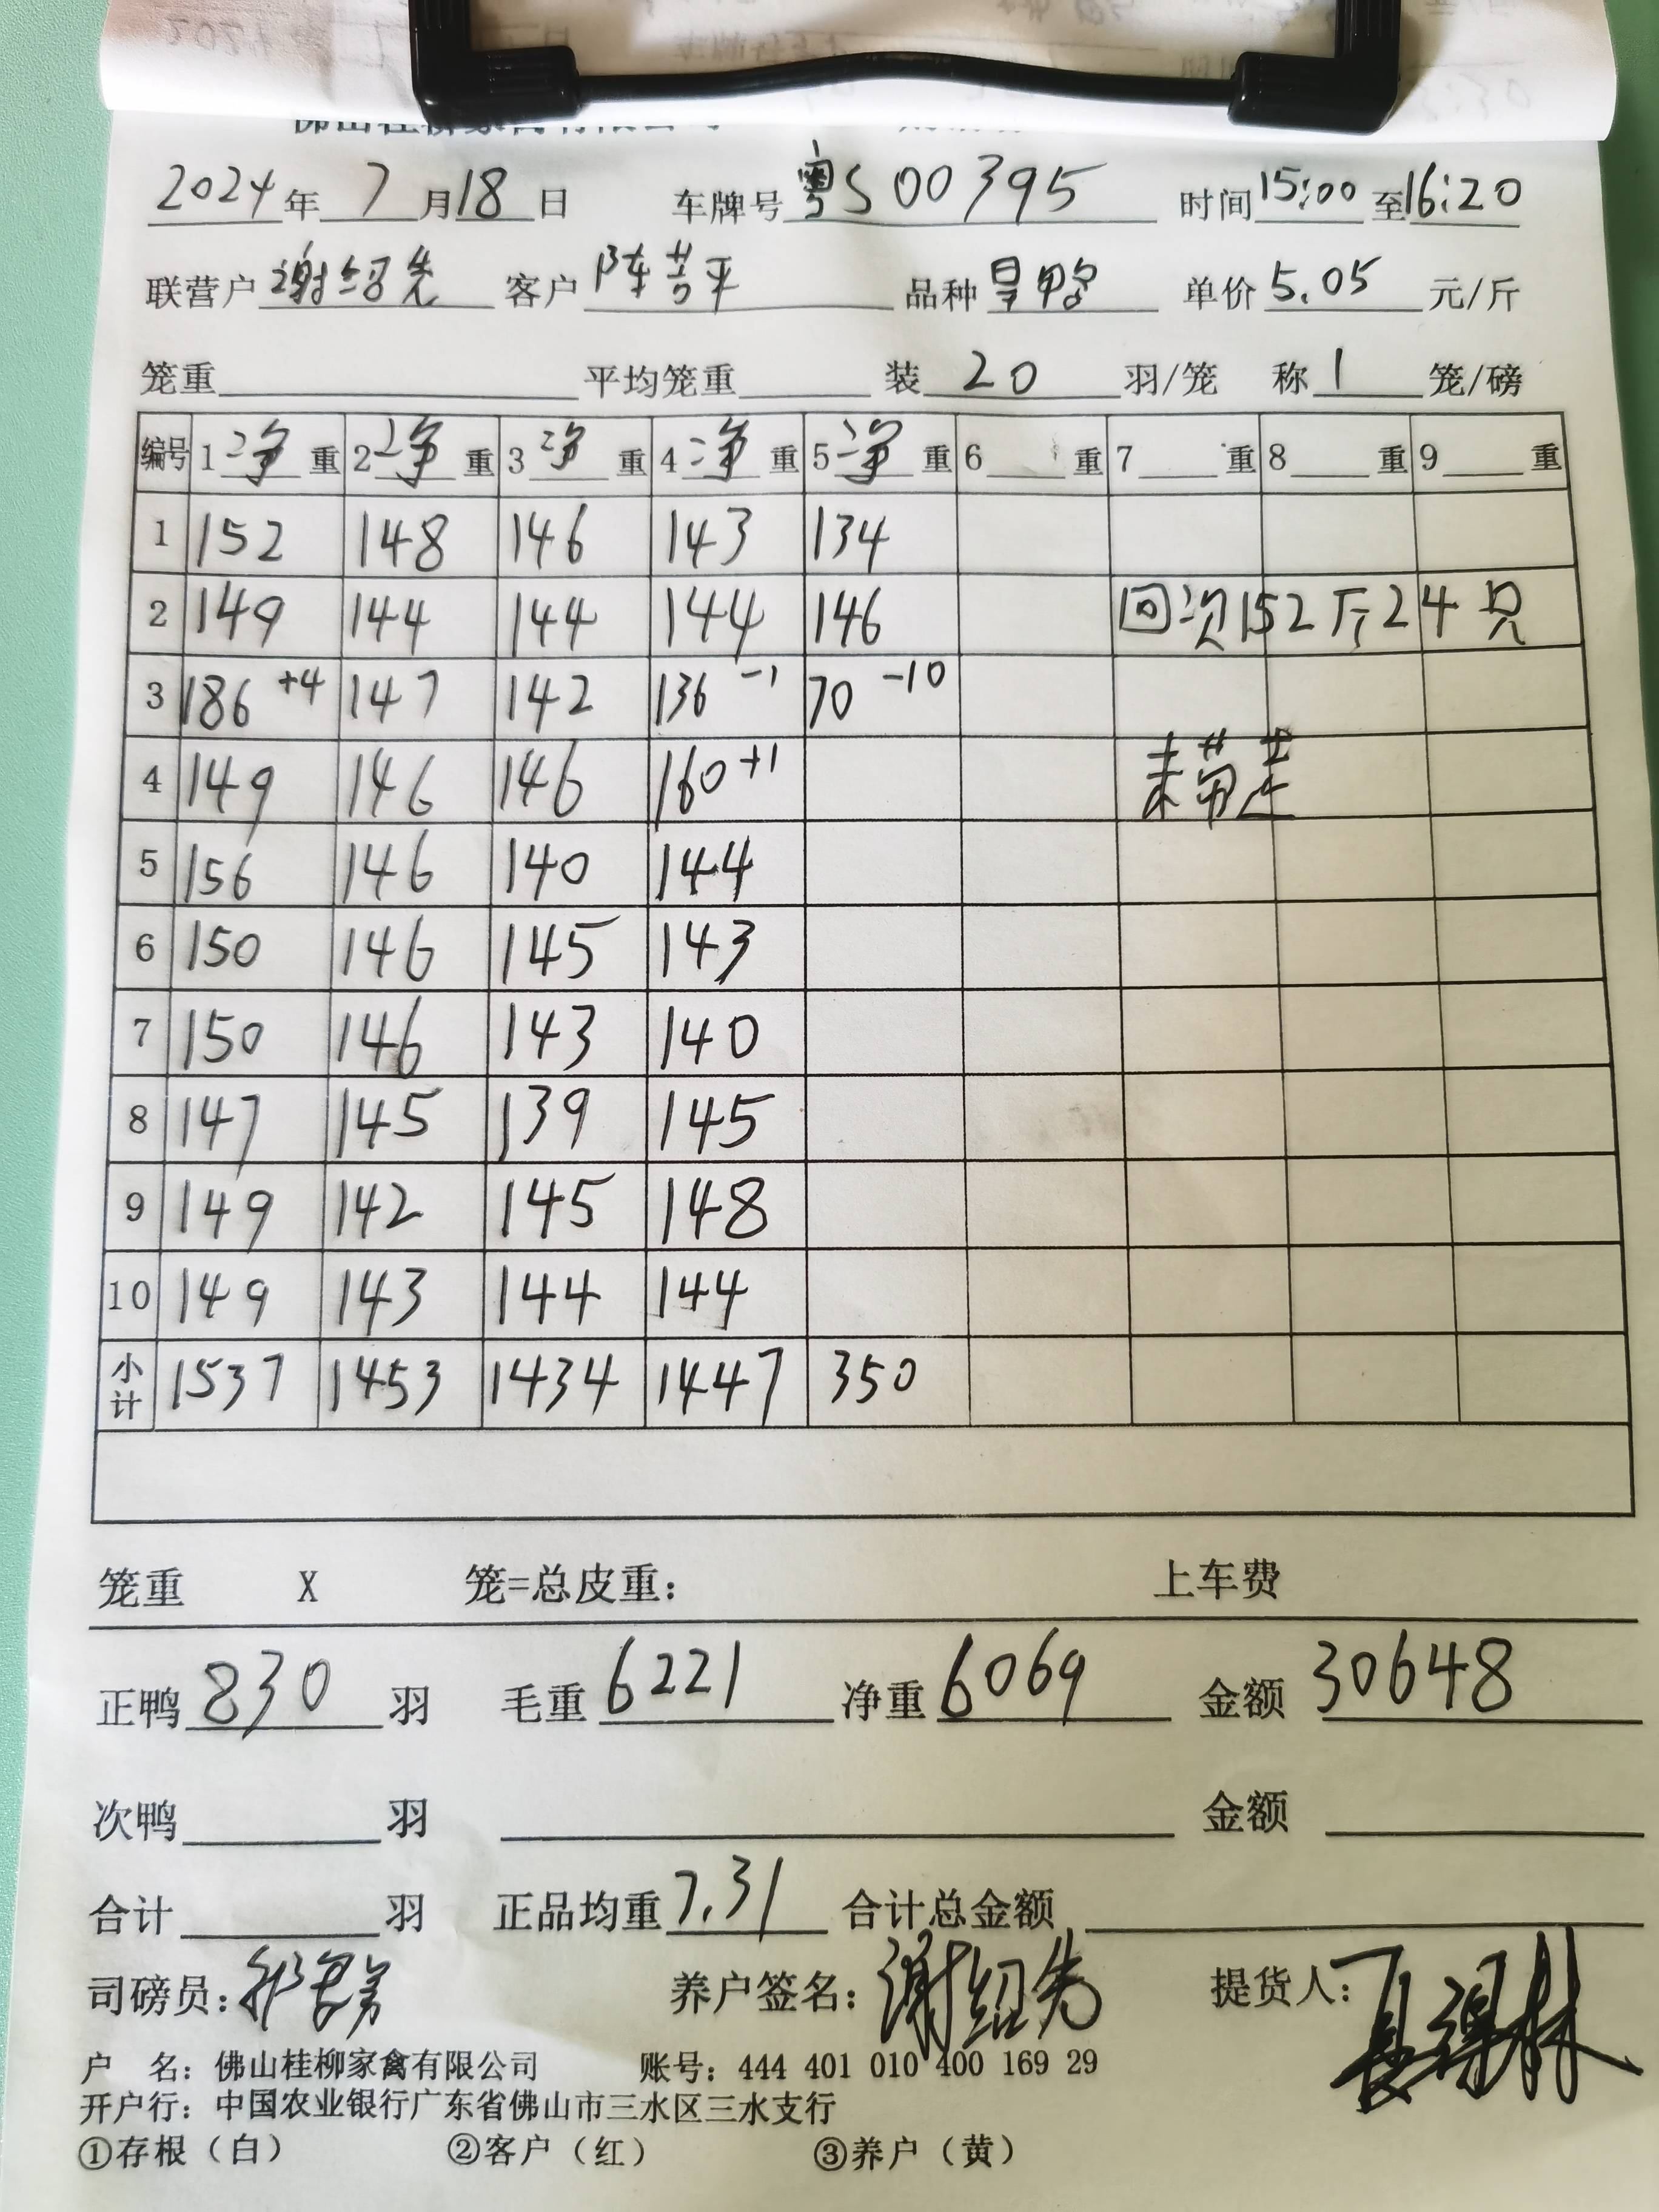 2024年7月18日 车牌号粤S00395 时间15:00至16:20
联营户谢绍先 客户陈芸平 品种旱鸭 单价5.05元/斤
笼重 平均笼重 装20羽/笼 称1笼/磅
编号 1净重 2净重 3净重 4净重 5净重 6重 7重 8重 9重
1 152 148 146 143 134
2 149 144 144 144 146 回次152斤24只
3 186+4 147 142 136-1 70-10
4 149 146 146 160+1 未带走
5 156 146 140 144
6 150 146 145 143
7 150 146 143 140
8 147 145 139 145
9 149 142 145 148
10 149 143 144 144
小计 1537 1453 1434 1447 350
笼重 X 笼=总皮重: 上车费
正鸭830羽 毛重6221 净重6069 金额30648
次鸭 羽 金额
合计 羽 正品均重7.31 合计总金额
司磅员: 养户签名:谢绍先 提货人:
户 名: 佛山桂柳家禽有限公司 账号: 444 401 010 400 169 29
开户行: 中国农业银行广东省佛山市三水区三水支行
①存根（白） ②客户（红） ③养户（黄）